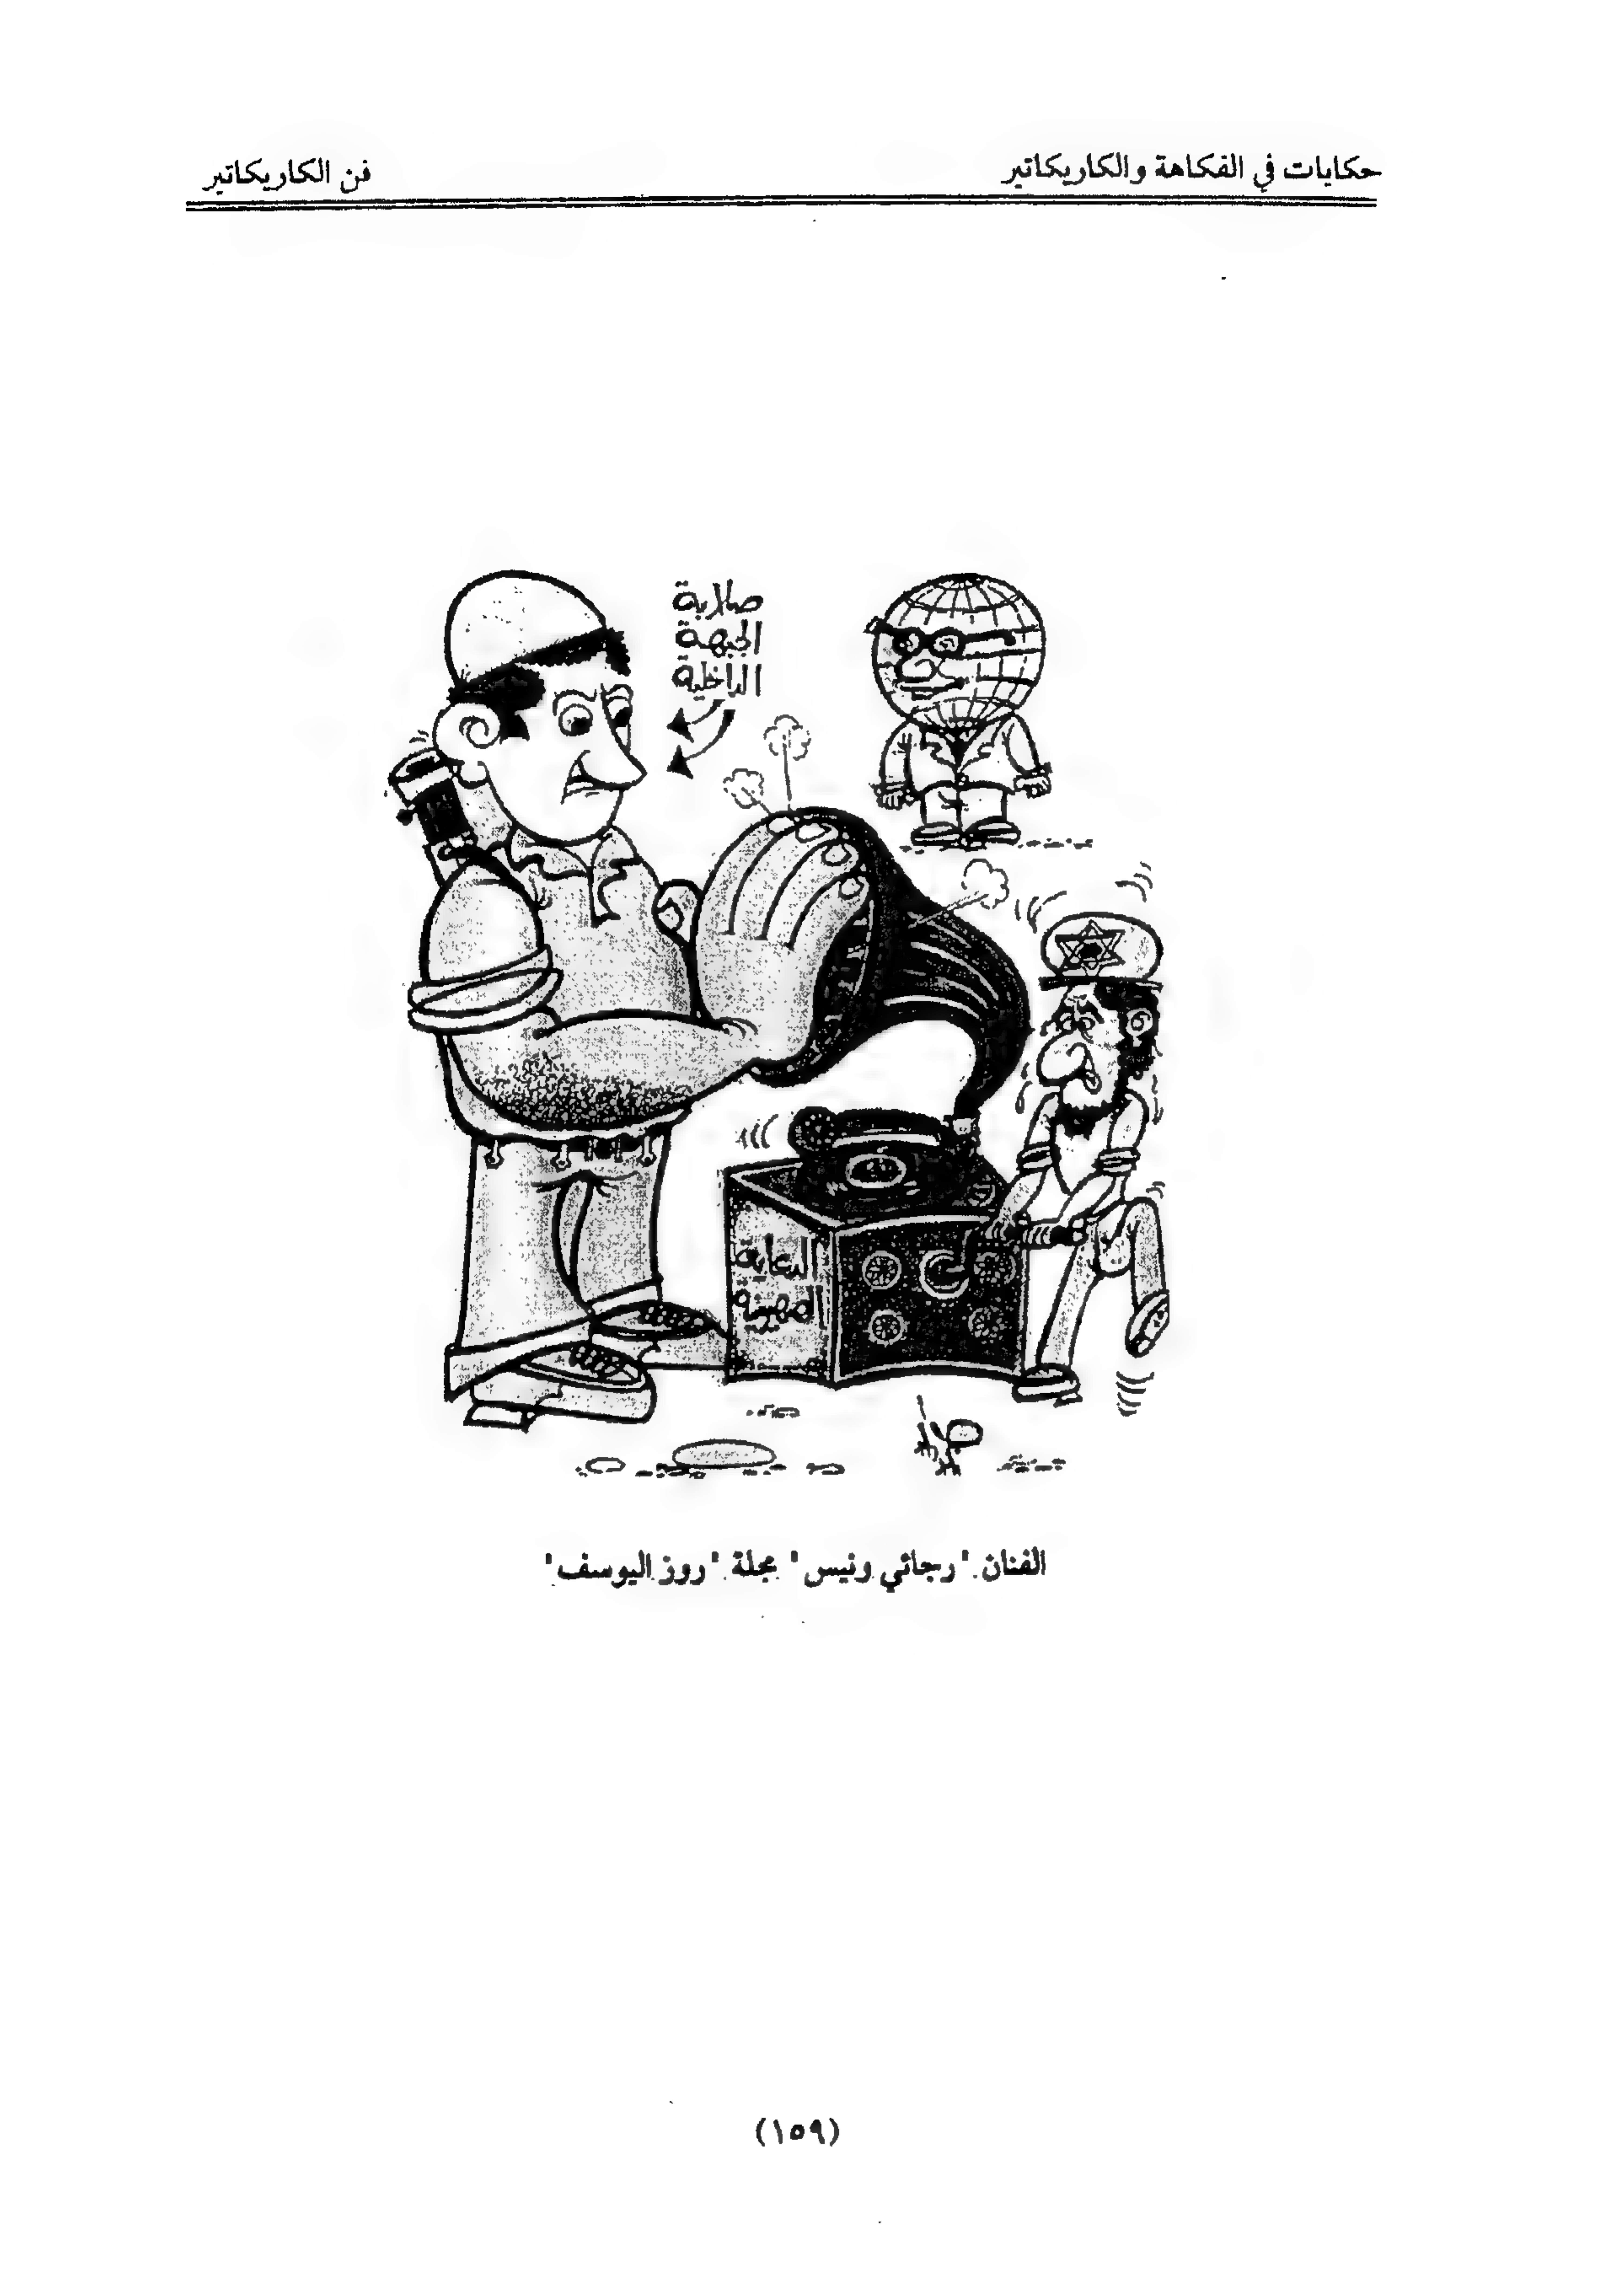 حكايات في الفكاهة والكاريكاتير
فن الكاريكاتير
صلابة
الجبهة
الداخلية
الدعاية
الصهيونية
الفنان "رجائي ونيس" مجلة "روز اليوسف"
(١٥٩)